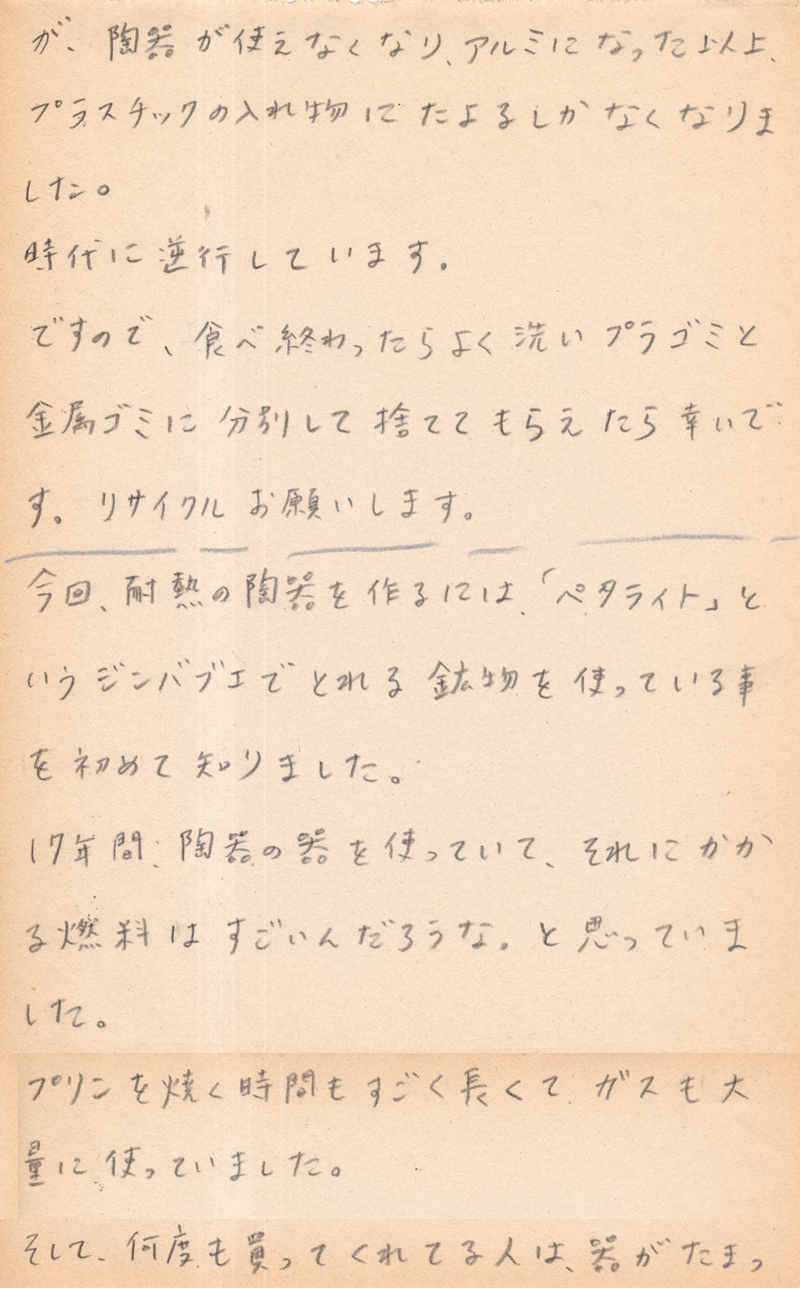 が、陶器が使えなくなり、アルミになった以上、
プラスチックの入れ物にたよるしかなくなりま
した。
時代に逆行しています。
ですので、食べ終わったらよく洗いプラゴミと
金属ゴミに分別して捨ててもらえたら幸いで
す。リサイクルお願いします。
今回、耐熱の陶器を作るには、「ペタライト」と
いうジンバブエでとれる鉱物を使っている事
を初めて知りました。
17年間、陶器の器を使っていて、それにかか
る燃料はすごいんだろうな。と思っていま
した。
プリンを焼く時間もすごく長くて、ガスも大
量に使っていました。
そして、何度も買ってくれてる人は、器がたまっ